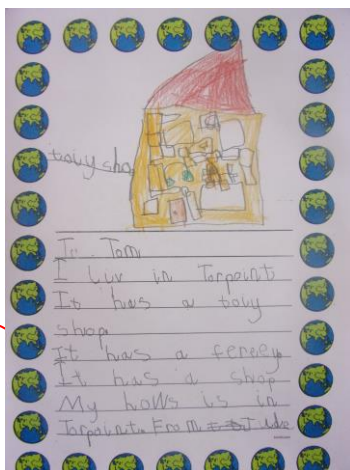 toiy sho
To. Tom
I Luv in Torpoint
It has a toiy
shop.
It has a fereey
It has a shop
My hows is in
Torpoint. From Jude